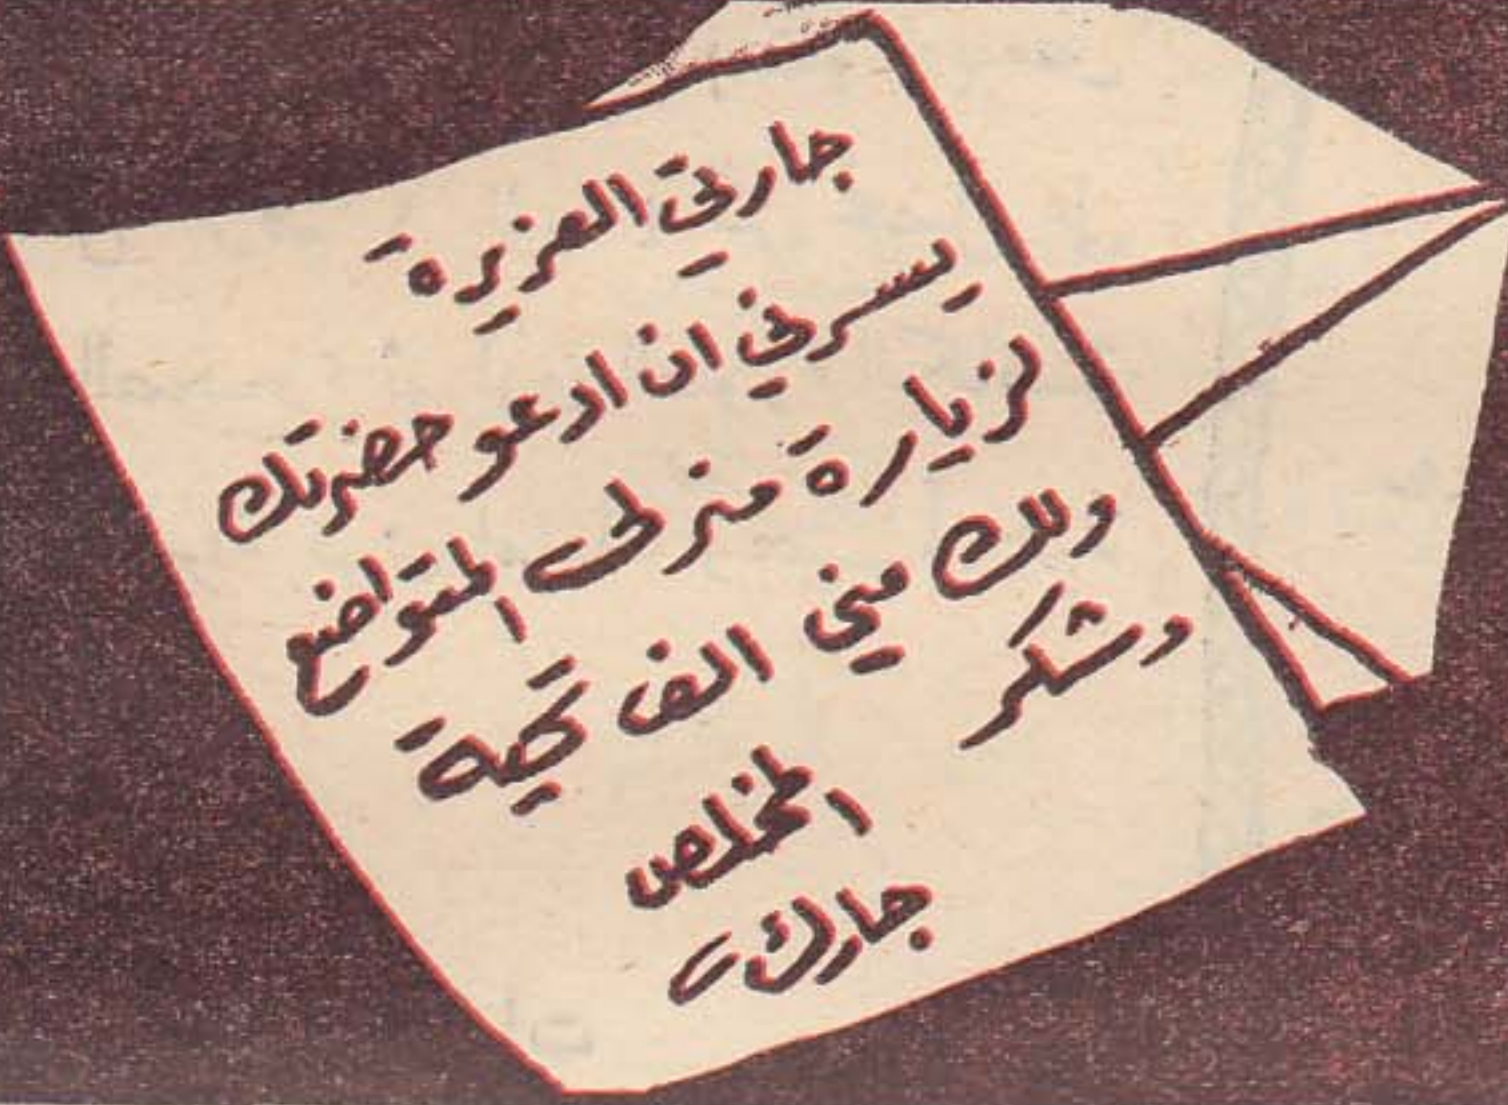 جارتي العزيزة
يسرني ان ادعو حضرتك
لزيارة منزلى المتواضع
ولك مني الف تحية
وشكر
المخلص
جارك